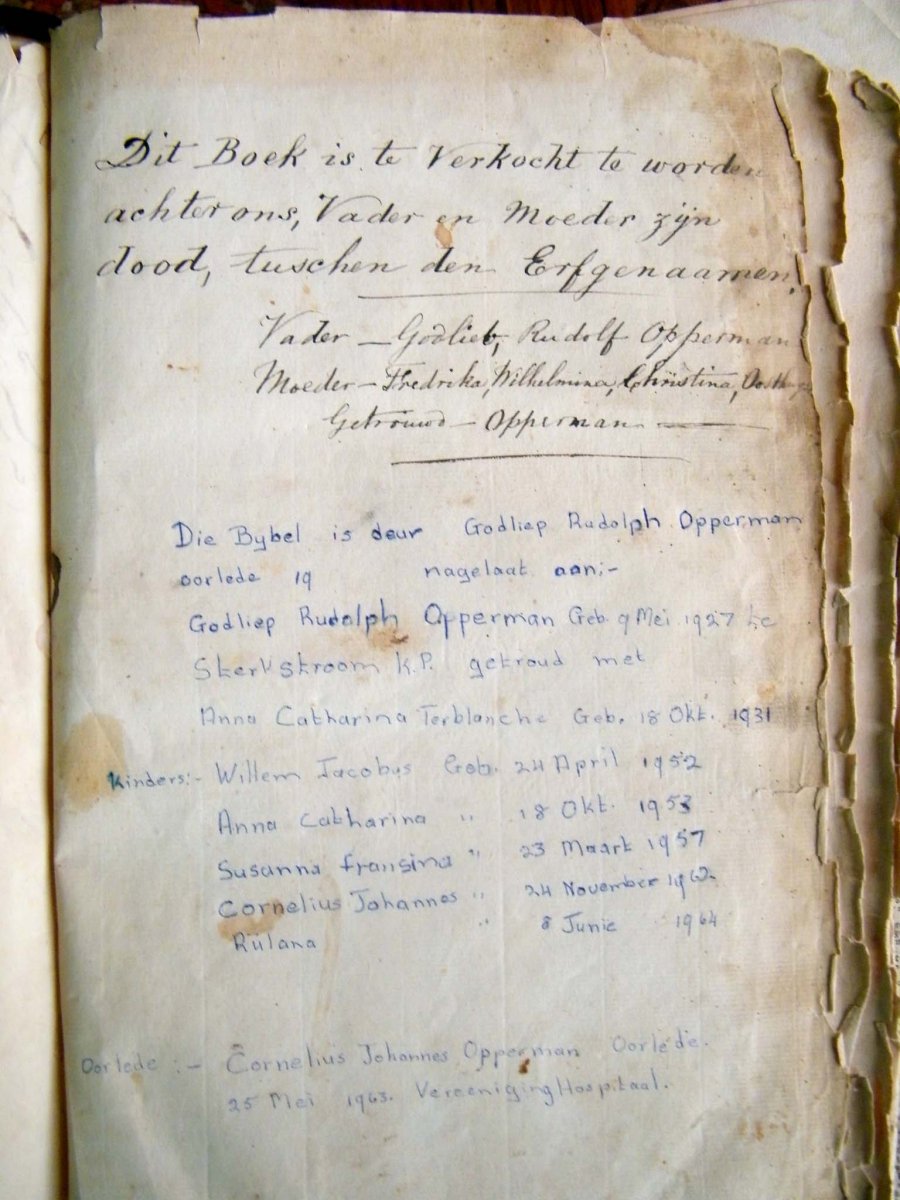 Dit Boek is te Verkocht te worden
achter ons, Vader en Moeder zijn
dood, tuschen den Erfgenaamen.
Vader — Godlieb, Rudolf Opperman
Moeder — Fredrika, Wilhelmina, Christina,
Getrouwd — Opperman —
Die Bybel is deur Godliep Rudolph Opperman
oorlede 19 nagelaat aan:-
Godliep Rudolph Opperman Geb. 9 Mei 1927 te
Sterkstroom K.P. getroud met
Anna Catharina Terblanche Geb. 18 Okt. 1931
Kinders:- Willem Jacobus Geb. 24 April 1952
Anna Catharina " 18 Okt. 1953
Susanna fransina " 23 Maart 1957
Cornelius Johannes " 24 November 1962
Rulana " 8 Junie 1964
Oorlede :- Cornelius Johannes Opperman Oorlede.
25 Mei 1963. Vereeniging Hospitaal.